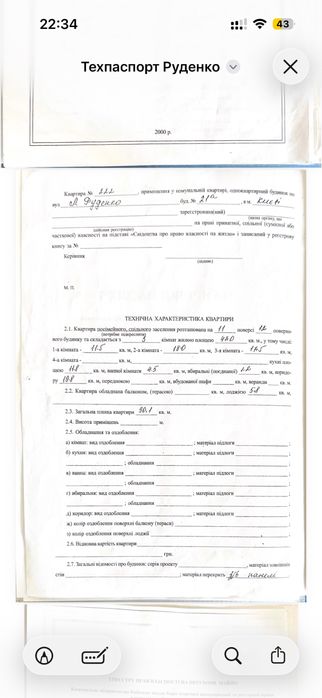 22:34
43
Техпаспорт Руденко
2000 р.
Квартира № 222, приміщення у комунальній квартирі, одноквартирний будинок по
вул. Л. Руденко буд. № 21а, в м. Києві
зареєстрований(а)
(назва органу, що
на праві приватної, спільної (сумісної або
здійснив реєстрацію)
часткової) власності на підставі «Свідоцтва про право власності на житло» і записаний у реєстрову
книгу за №
Керівник
(підпис)
М. П.
ТЕХНІЧНА ХАРАКТЕРИСТИКА КВАРТИРИ
2.1. Квартира посімейного, спільного заселення розташована на 11 поверсі 12 поверхо-
(потрібне підкреслити)
вого будинку та складається з 3 кімнат жилою площею кв. м, у тому числі:
1-а кімната - кв. м, 2-а кімната - кв. м, 3-я кімната - кв. м,
4-а кімната - кв. м, кухні пло-
щею кв. м, ванної кімнати 4.5 кв. м, вбиральні (поєднаної) кв. м, коридо-
ру кв. м, передпокою кв. м, вбудованої шафи кв. м, веранди кв. м.
2.2. Квартира обладнана балконом, (терасою) кв. м, лоджією кв. м,
2.3. Загальна площа квартири кв. м.
2.4. Висота приміщень м.
2.5. Обладнання та оздоблення:
а) кімнат: вид оздоблення ; матеріал підлоги ;
б) кухня: вид оздоблення ; матеріал підлоги
; обладнання ;
в) ванна: вид оздоблення ; матеріал підлоги
; обладнання ;
г) вбиральня: вид оздоблення ; матеріал підлоги
; обладнання ;
д) коридор: вид оздоблення ; матеріал підлоги ;
ж) колір оздоблення поверхні балкону (тераси) ;
з) колір оздоблення поверхні лоджії
2.6. Відновна вартість квартири
грн.
2.7. Загальні відомості про будинок: серія проекту , матеріал зовнішніх
стін ; матеріал перекрить з/б панелі